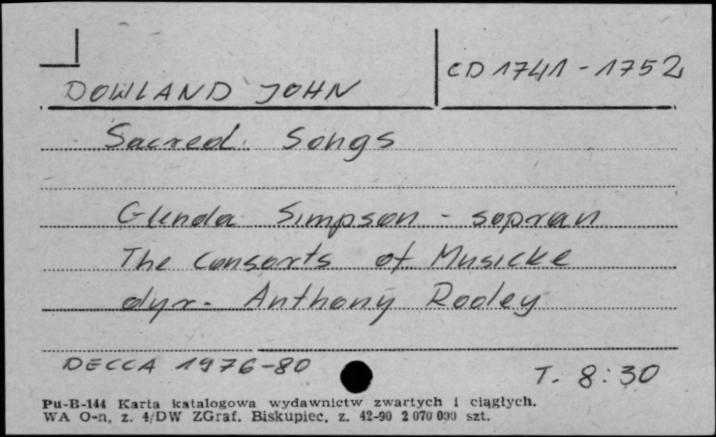 DOWLAND JOHN
CD 1741 - 1752
Sacred Songs
Glenda Simpson - sopran
The Consorts of Musicke
dyr. Anthony Rooley
DECCA 1976-80
T. 8:30
Pu-B-144 Karta katalogowa wydawnictw zwartych i ciągłych.
WA O-n, z. 4/DW ZGraf. Biskupiec, z. 42-90 2 070 000 szt.